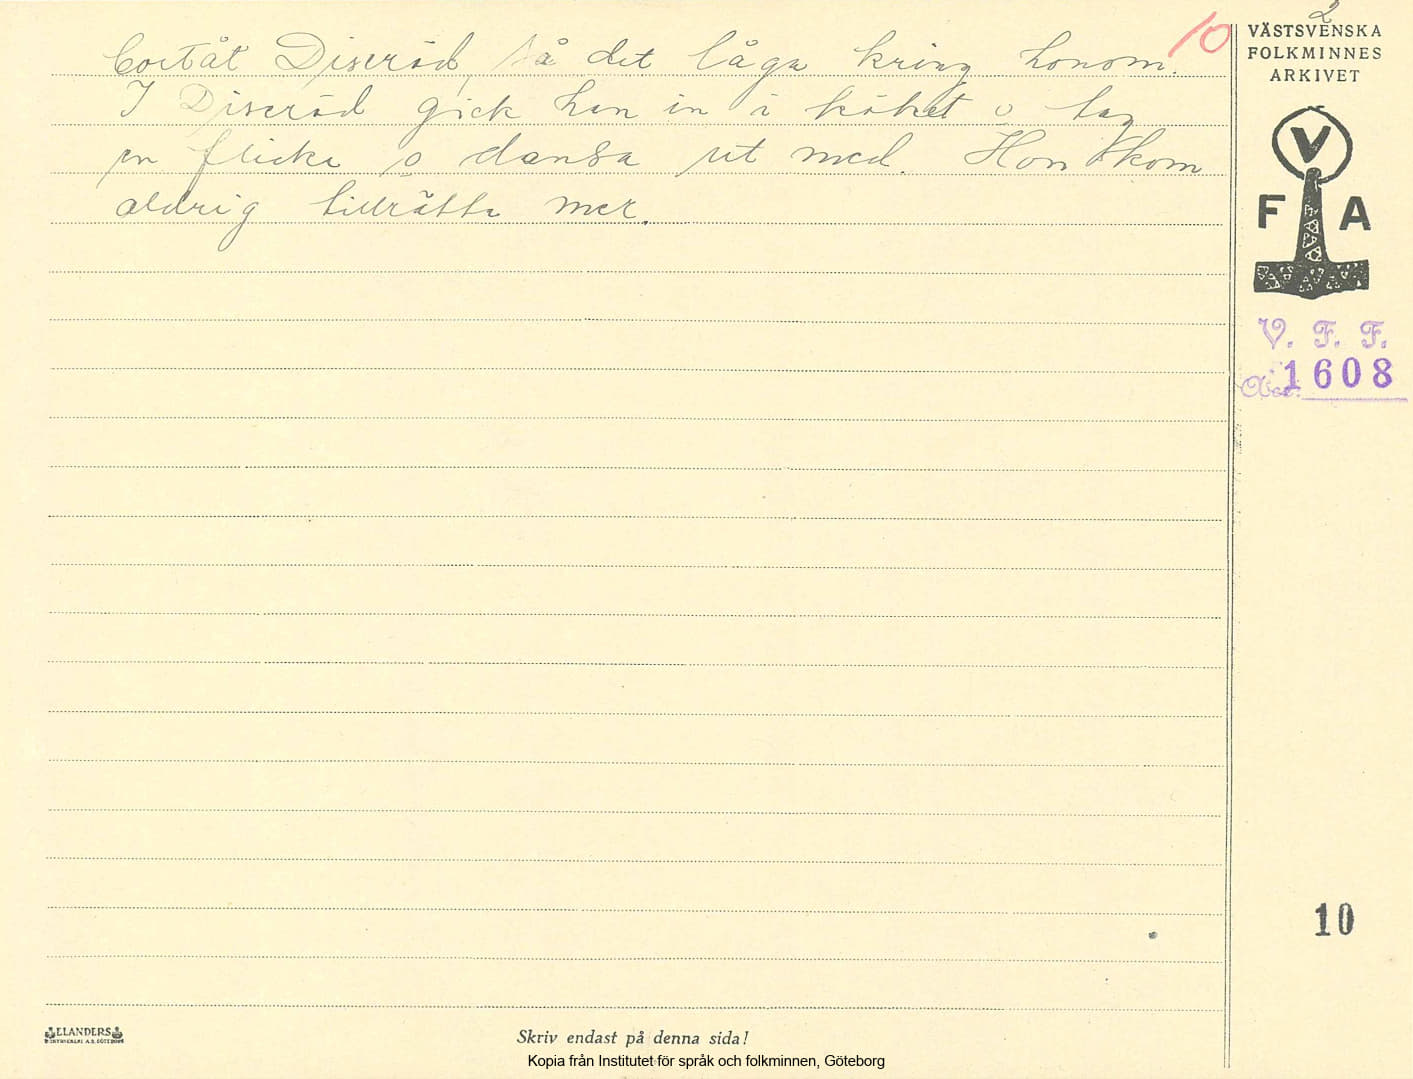 2
10
bortåt Diseröd, så det låga kring honom.
I Diseröd gick han in i köket o tag
en flicka o dansa ut med. Hon kom
aldrig tillrätta mer.
VÄSTSVENSKA
FOLKMINNES
ARKIVET
V
F A
V. F. F.
Acc. 1608
10
ELANDERS
Skriv endast på denna sida!
Kopia från Institutet för språk och folkminnen, Göteborg